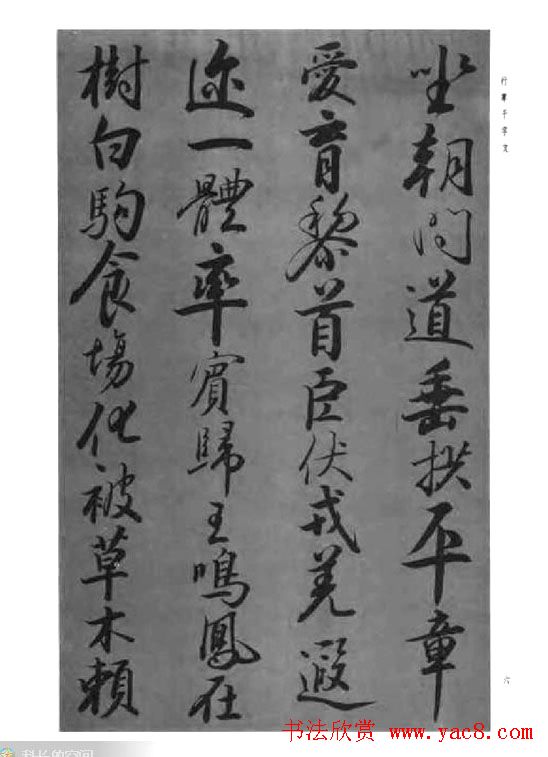 行書千字文
坐朝問道垂拱平章
愛育黎首臣伏戎羌遐
迩一體率賓歸王鳴鳳在
樹白駒食場化被草木賴
六
书法欣赏 www.yac8.com
科长的空间